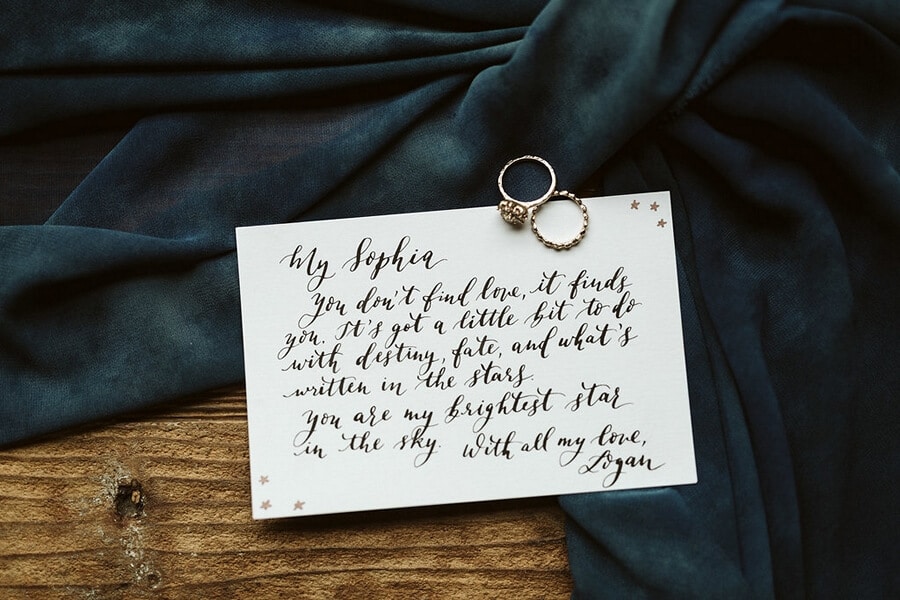 My Sophia
You don't find love, it finds
you. It's got a little bit to do
with destiny, fate, and what's
written in the stars.
You are my brightest star
in the sky. With all my love,
Logan